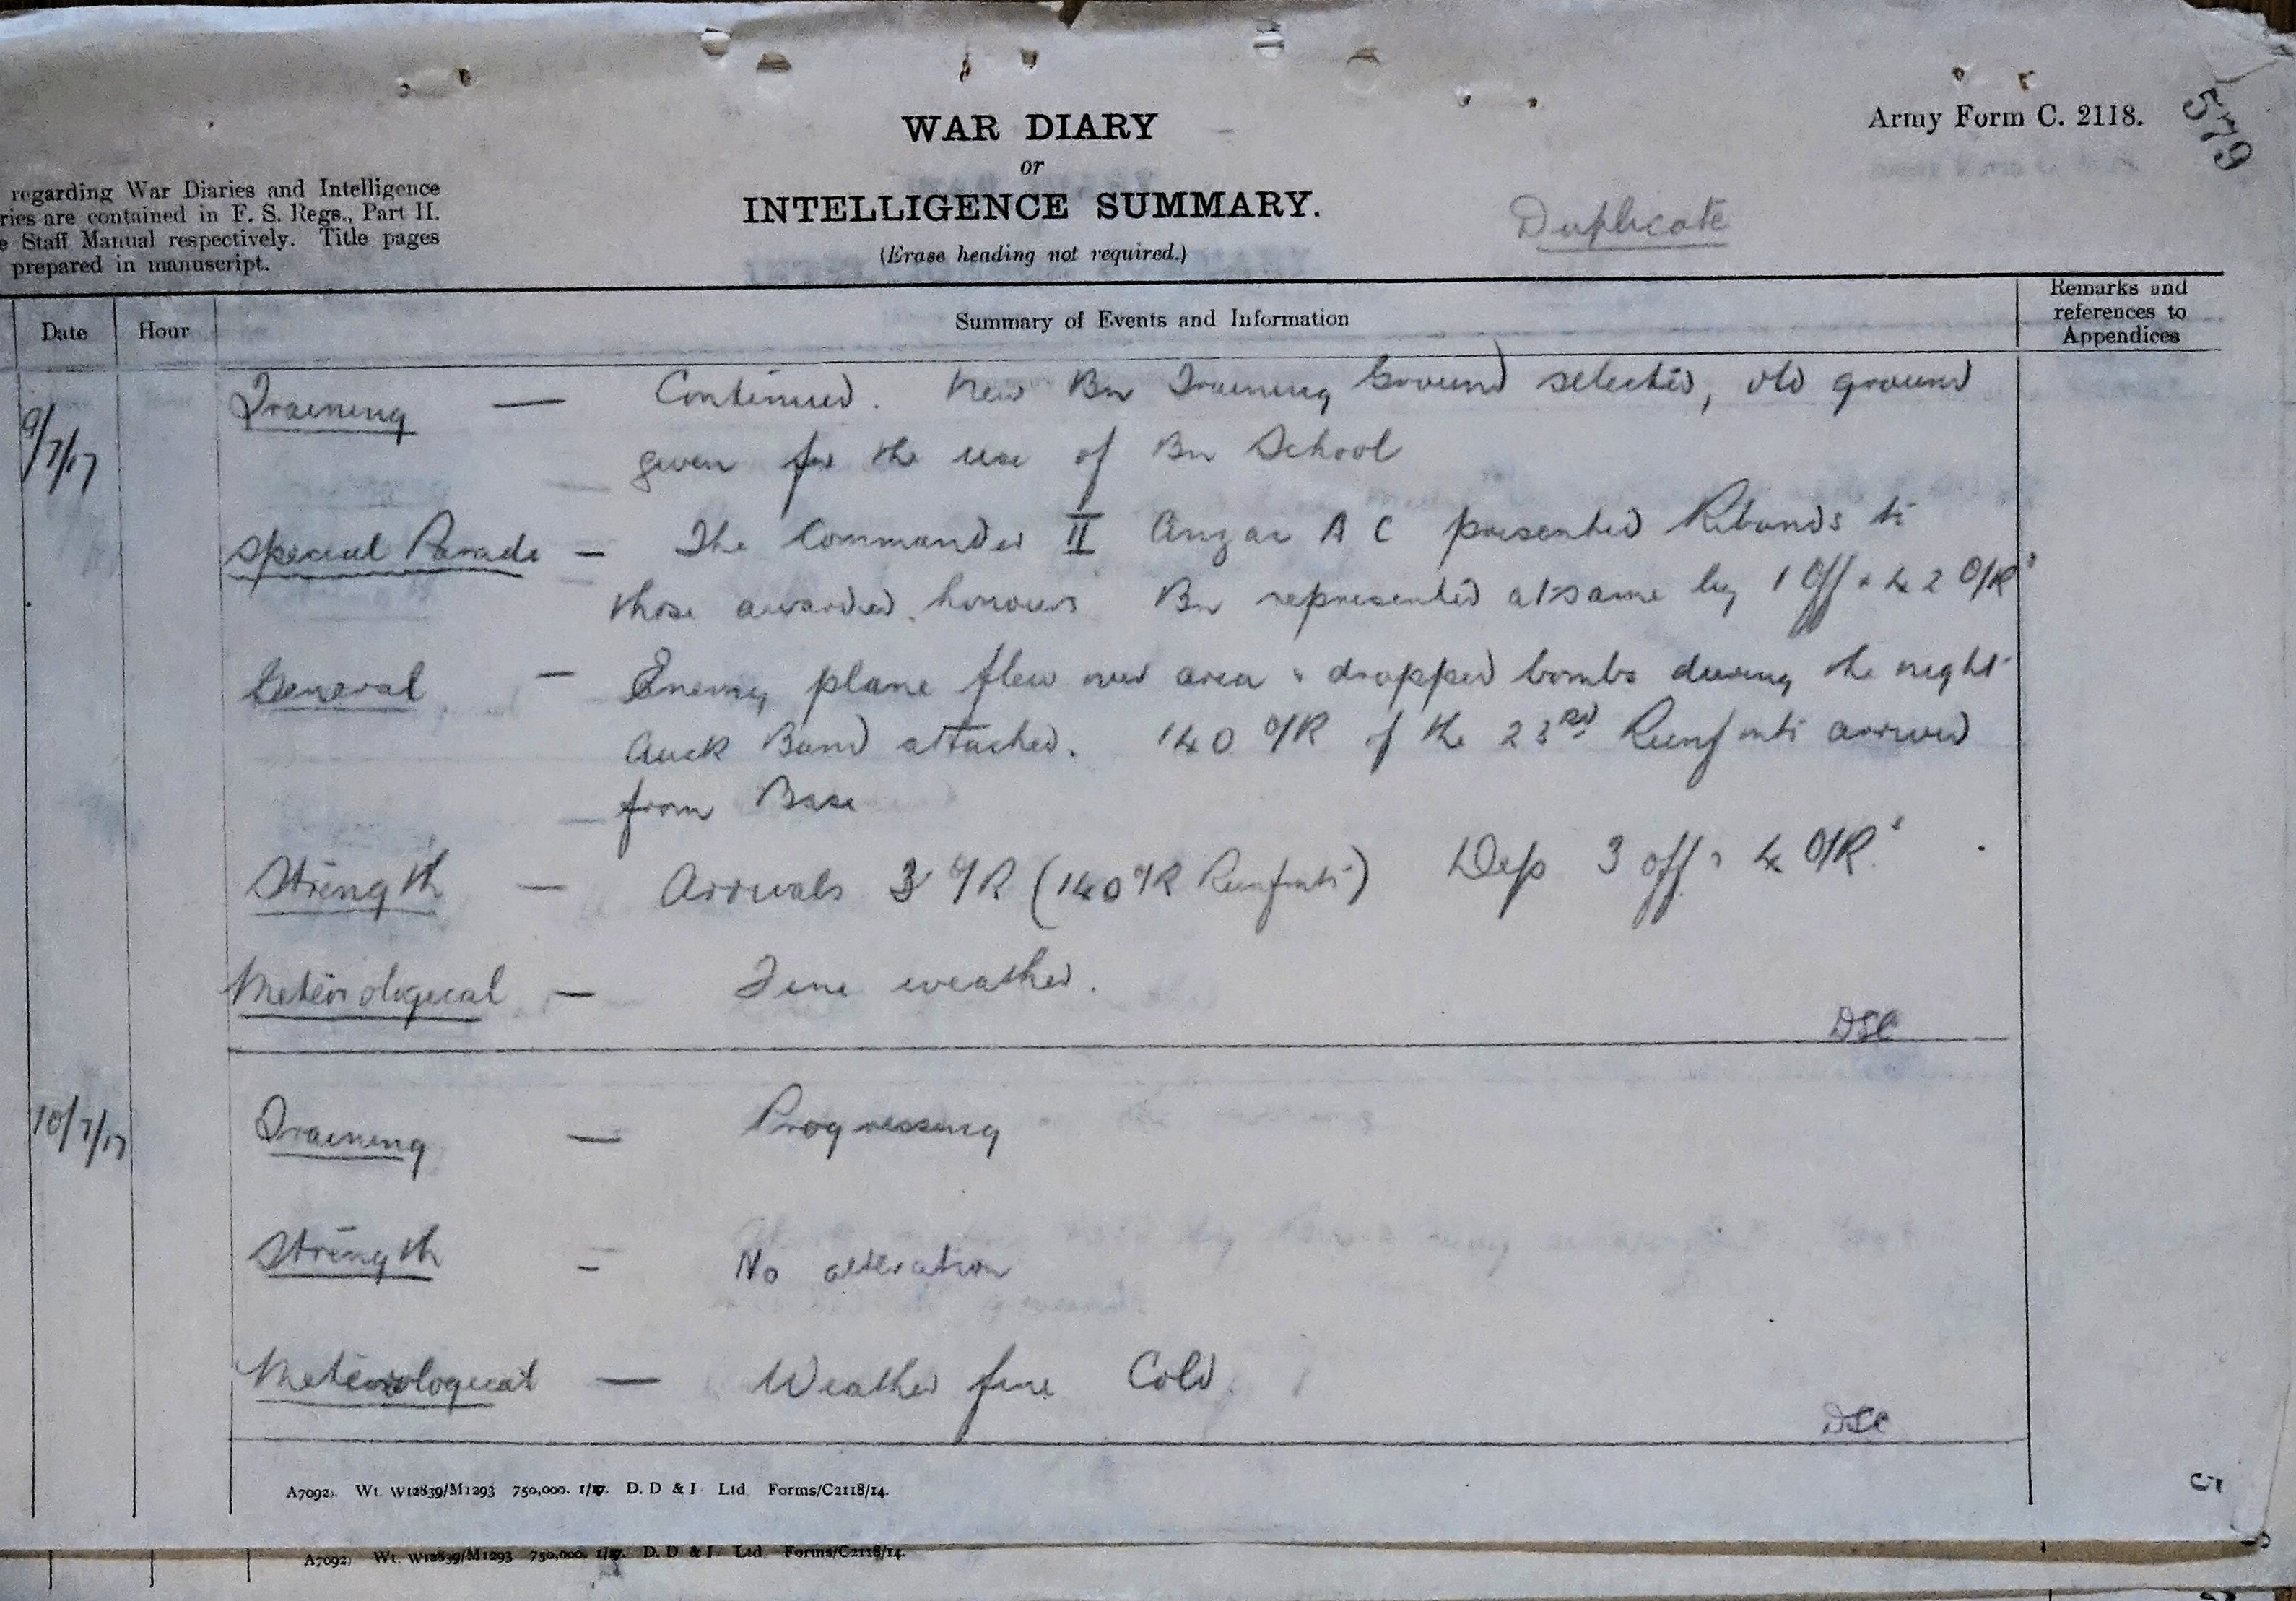 WAR DIARY
or
INTELLIGENCE SUMMARY.
(Erase heading not required.)
Army Form C. 2118.
579
Duplicate
regarding War Diaries and Intelligence
ries are contained in F. S. Regs., Part II.
e Staff Manual respectively. Title pages
prepared in manuscript.
Date Hour Summary of Events and Information Remarks and references to Appendices
9/7/17 Training — Continued. New Bn Training Ground selected, old ground
given for the use of Bn School
Special Parade — The Commander II Anzac A C presented Ribands to
those awarded honours Bn represented at same by 1 Off & 42 O/R's
General — Enemy plane flew over area & dropped bombs during the night
Auck Band attached. 140 O/R of the 23rd Reinfmts arrived
from Base
Strength — Arrivals 3 O/R (140 O/R Reinfmts) Dep 3 off & 4 O/R's
Meteorological — Fine weather.
DSC
10/7/17 Training — Progressing
Strength — No alteration
Meteorological — Weather fine Cold
DSC
A7092). Wt. W12839/M1293 750,000. 1/17. D. D & I Ltd Forms/C2118/14.
A7092) Wt. W12839/M1293 750,000. 1/17. D. D & I. Ltd Forms/C2118/14.